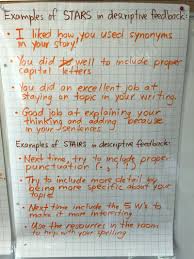 Examples of STARS in descriptive feedback:
• I liked how you used synonyms
in your story!
• You did well to include proper
capital letters
• You did an excellent job at
staying on topic in your writing.
• Good job at explaining your
thinking and adding because
in your sentences
Examples of STARS in descriptive feedback:
• Next time, try to include proper
punctuation
• Try to include more detail by
being more specific about your
topic
• Next time include the 5 W's to
make it more interesting
• Use the resources in the room
to help with your spelling